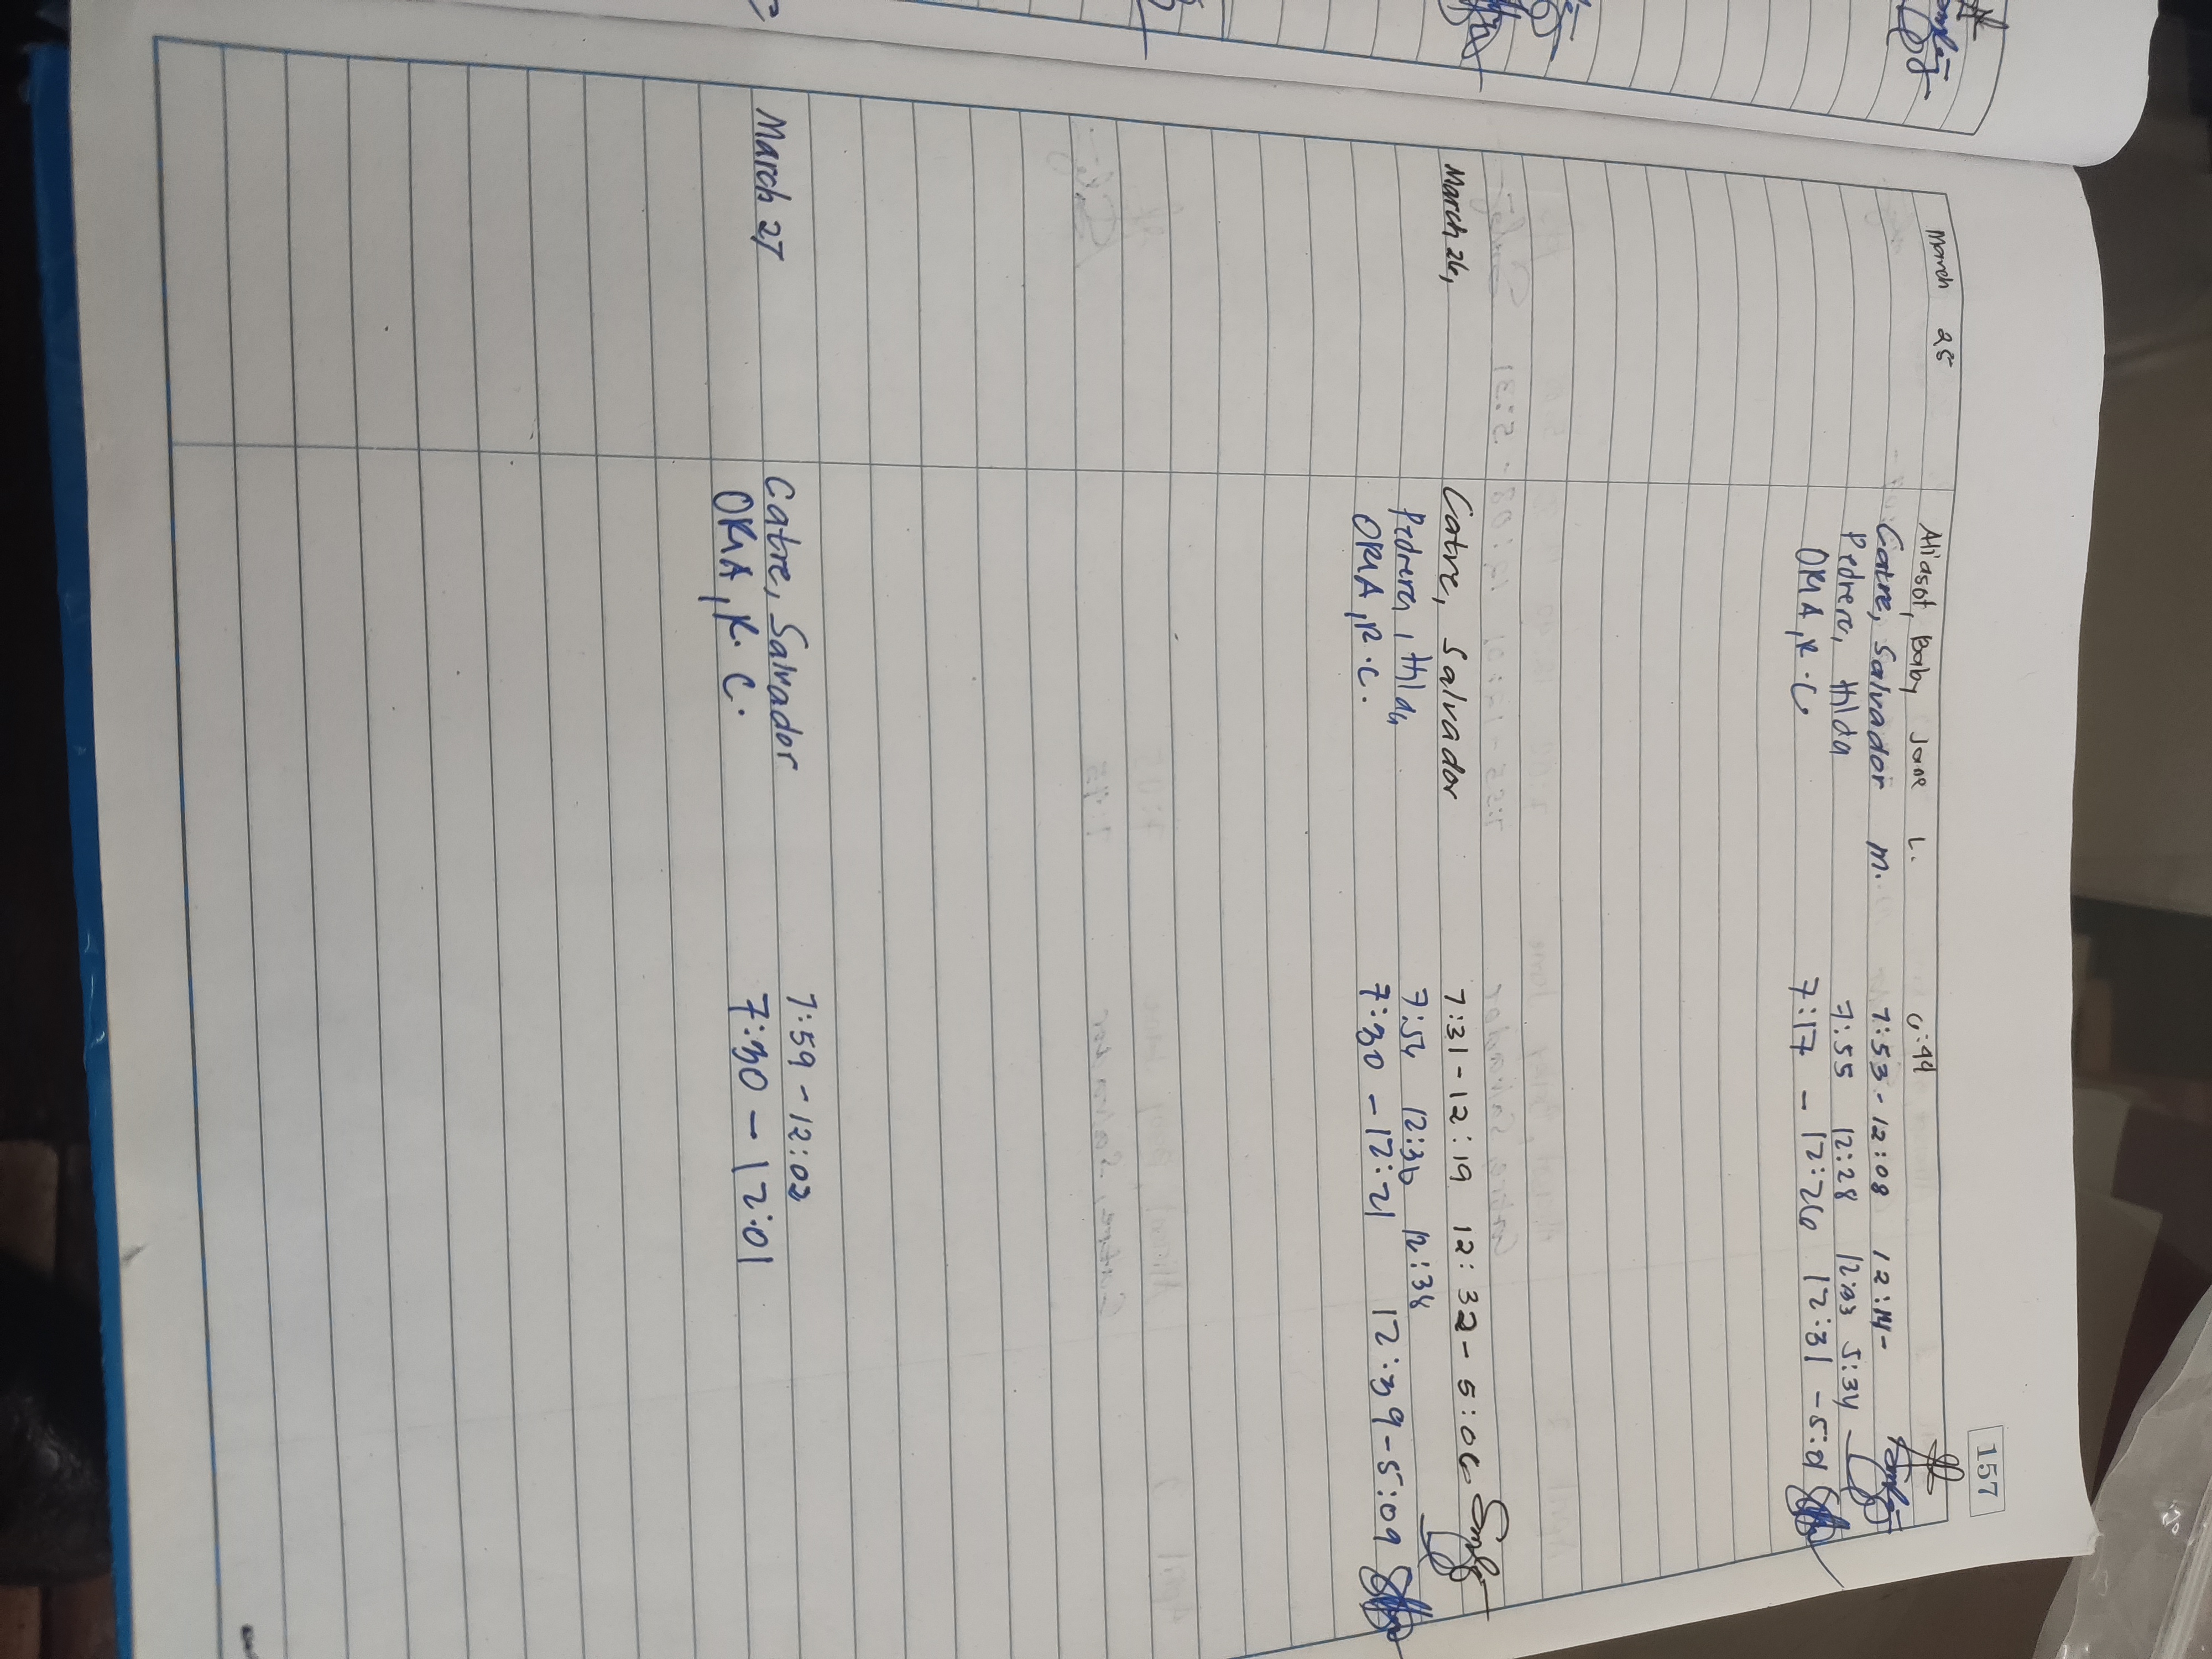 157
March 25 Aliasot, Baby Jane L.
Catre, Salvador M. 7:53 - 12:08 12:14 -
Pedrera, Hilda 7:55 12:28 5:34
ORMA, K. C. 7:17 - 12:26 12:31 - 5:
March 26, Catre, Salvador 7:31 - 12:19 12:32 - 5:06
Pedrera, Hilda 7:54 12:36 12:38
ORMA, K. C. 7:30 - 12:21 12:39 - 5:09
March 27 Catre, Salvador 7:59 - 12:02
ORMA, K. C. 7:30 - 12:01